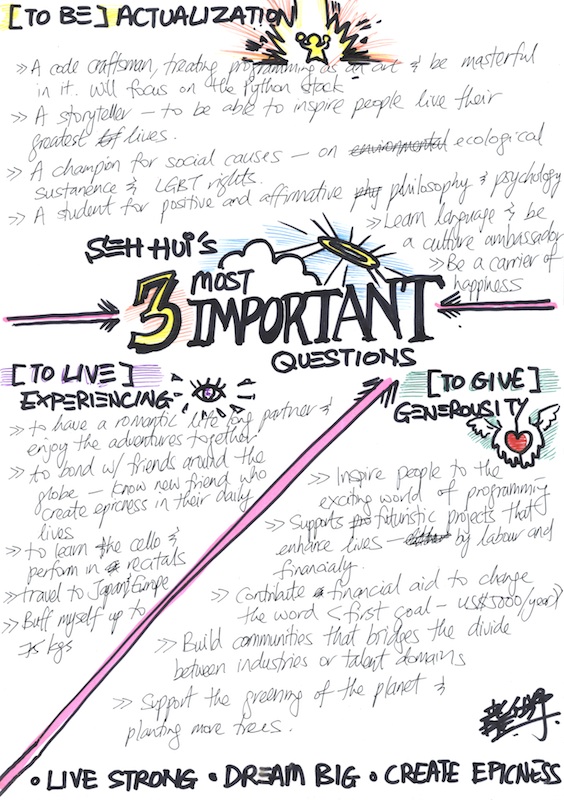 [TO BE] ACTUALIZATION
» A code craftsman, treating programming as an art & be masterful
in it. Will focus on the Python stack
» A storyteller – to be able to inspire people live their
greatest lives.
» A champion for social causes – on environmental ecological
sustanence & LGBT rights.
» A student for positive and affirmative phy philosophy & psychology
» Learn language & be
a culture ambassador
» Be a carrier of
happiness
SEH HUI'S
3 MOST
IMPORTANT
QUESTIONS
[TO LIVE]
EXPERIENCING
» to have a romantic life long partner &
enjoy the adventures together
» to bond w/ friends around the
globe – know new friend who
create epicness in their daily
lives
» to learn the cello &
perform in recitals
» travel to Japan/Europe
» Buff myself up to
75 kgs
[TO GIVE]
GENEROUSITY
» Inspire people to the
exciting world of programming
» Supports futuristic projects that
enhance lives – by labour and
financialy.
» contribute financial aid to change
the word <first goal – US$5000/year>
» Build communities that bridges the divide
between industries or talent domains
» Support the greening of the planet &
planting more trees.
• LIVE STRONG • DREAM BIG • CREATE EPICNESS